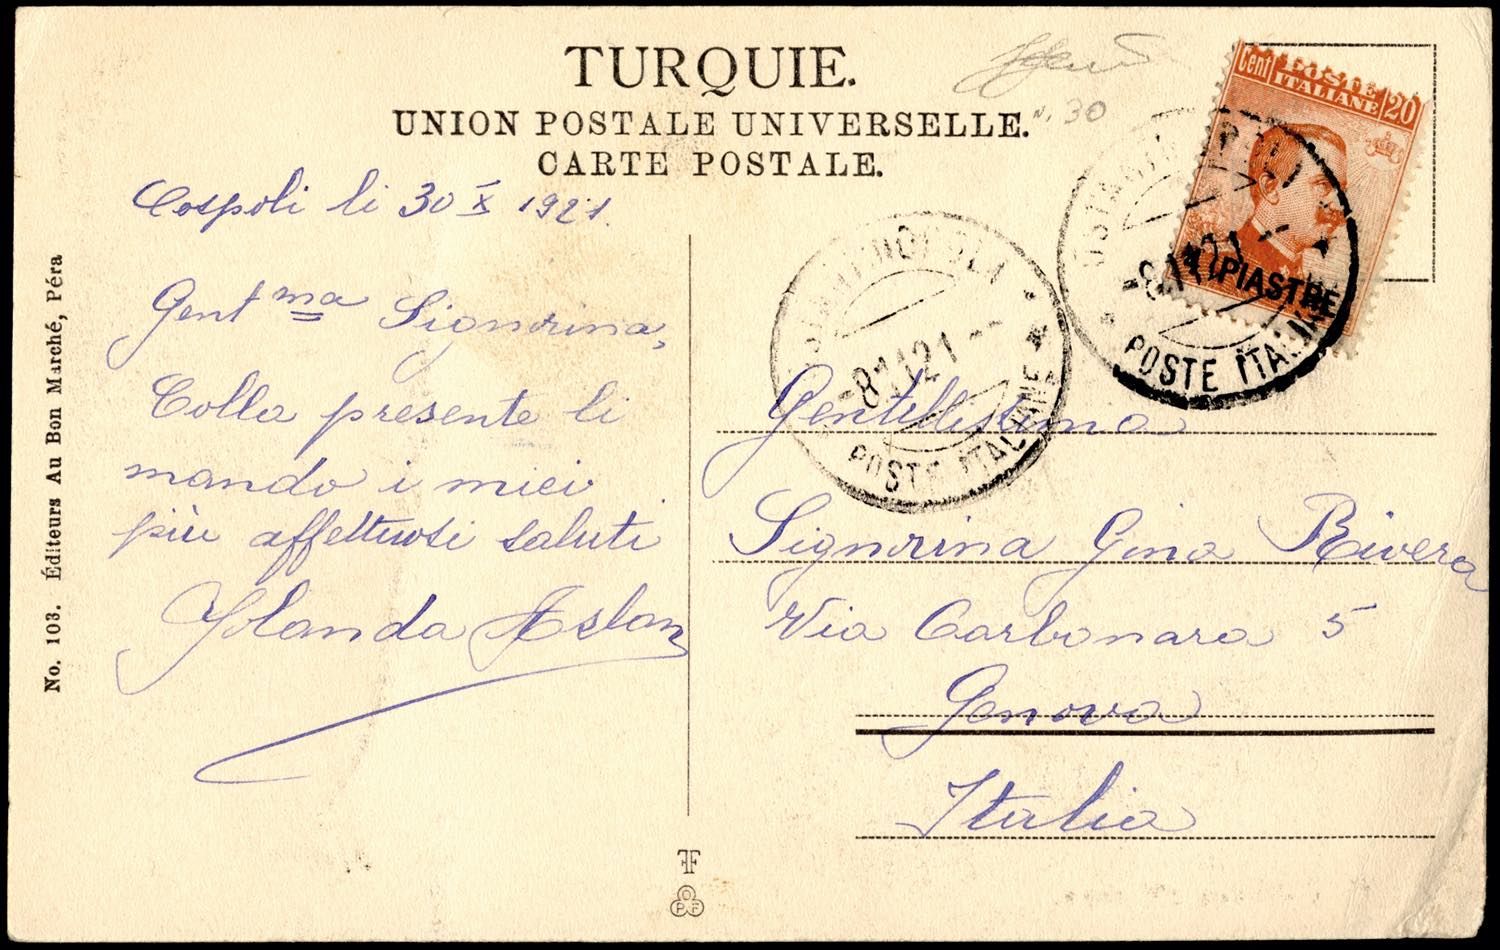 TURQUIE.
UNION POSTALE UNIVERSELLE.
CARTE POSTALE.
N. 30
Cent POSTE ITALIANE 20
PIASTRE
POSTE ITALIANE
-8.11.21--
POSTE ITALIANE
Cospoli li 30 X 1921.
Gent ma Signorina,
Colla presente li
mando i miei
più affettuosi saluti
Yolanda Aslan
Gentillissima
Signorina Gina Rivera
Via Carbonara 5
Genova
Italia
No. 103. Éditeurs Au Bon Marché, Péra
OPF